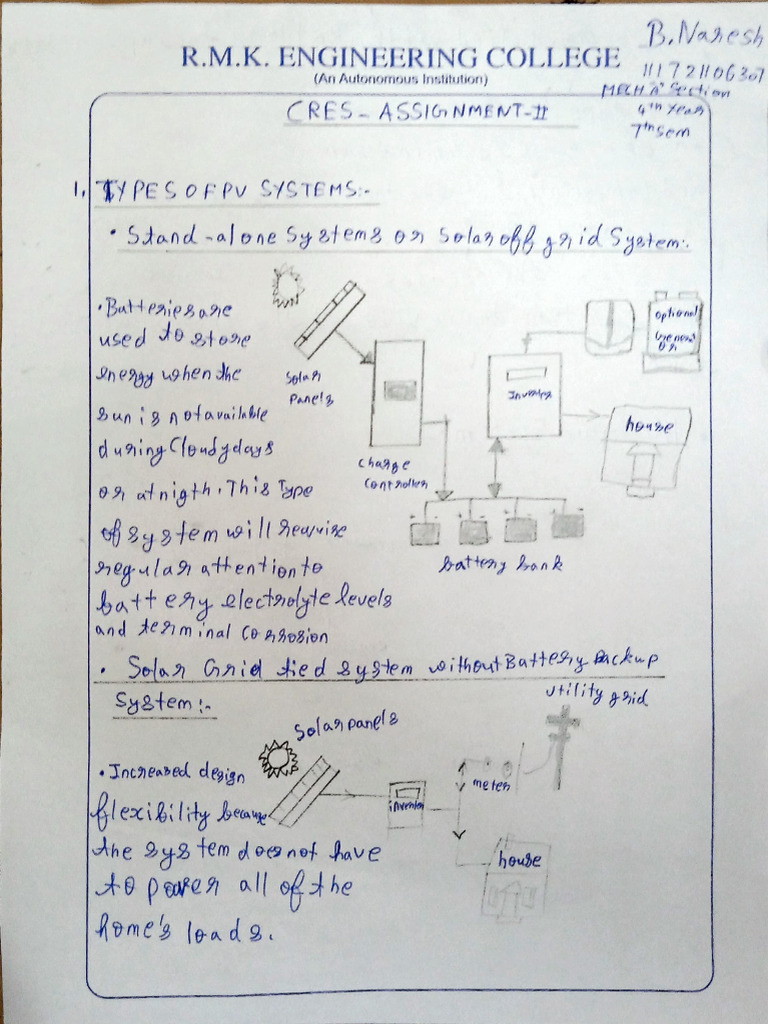 B. Naresh
R.M.K. ENGINEERING COLLEGE
(An Autonomous Institution)
111721106307
MECH 'A' Section
4th Year
7th Sem
CRES - ASSIGNMENT-II
1, TYPES OF PV SYSTEMS:-
• Stand-alone Systems or Solar off grid System:-
• Batteries are
used to store
energy when the
sun is not available
during Cloudy days
or at nigth. This Type
of system will require
regular attention to
battery electrolyte levels
and terminal Corrosion
Solar
Panels
Charge
Controller
Inverter
optional
house
battery bank
• Solar Grid tied system without Battery Backup
System:-
utility grid
Solar panels
• Increased design
flexibility because
the system does not have
to power all of the
home's loads.
inverter
meter
house